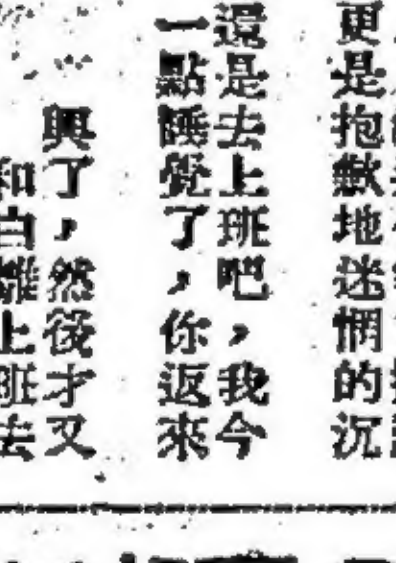 更是抱歉地迷惘的沉
還是去上班吧，我今
一點睡覺了，你返來
興了，然後才又
和白雖上班去